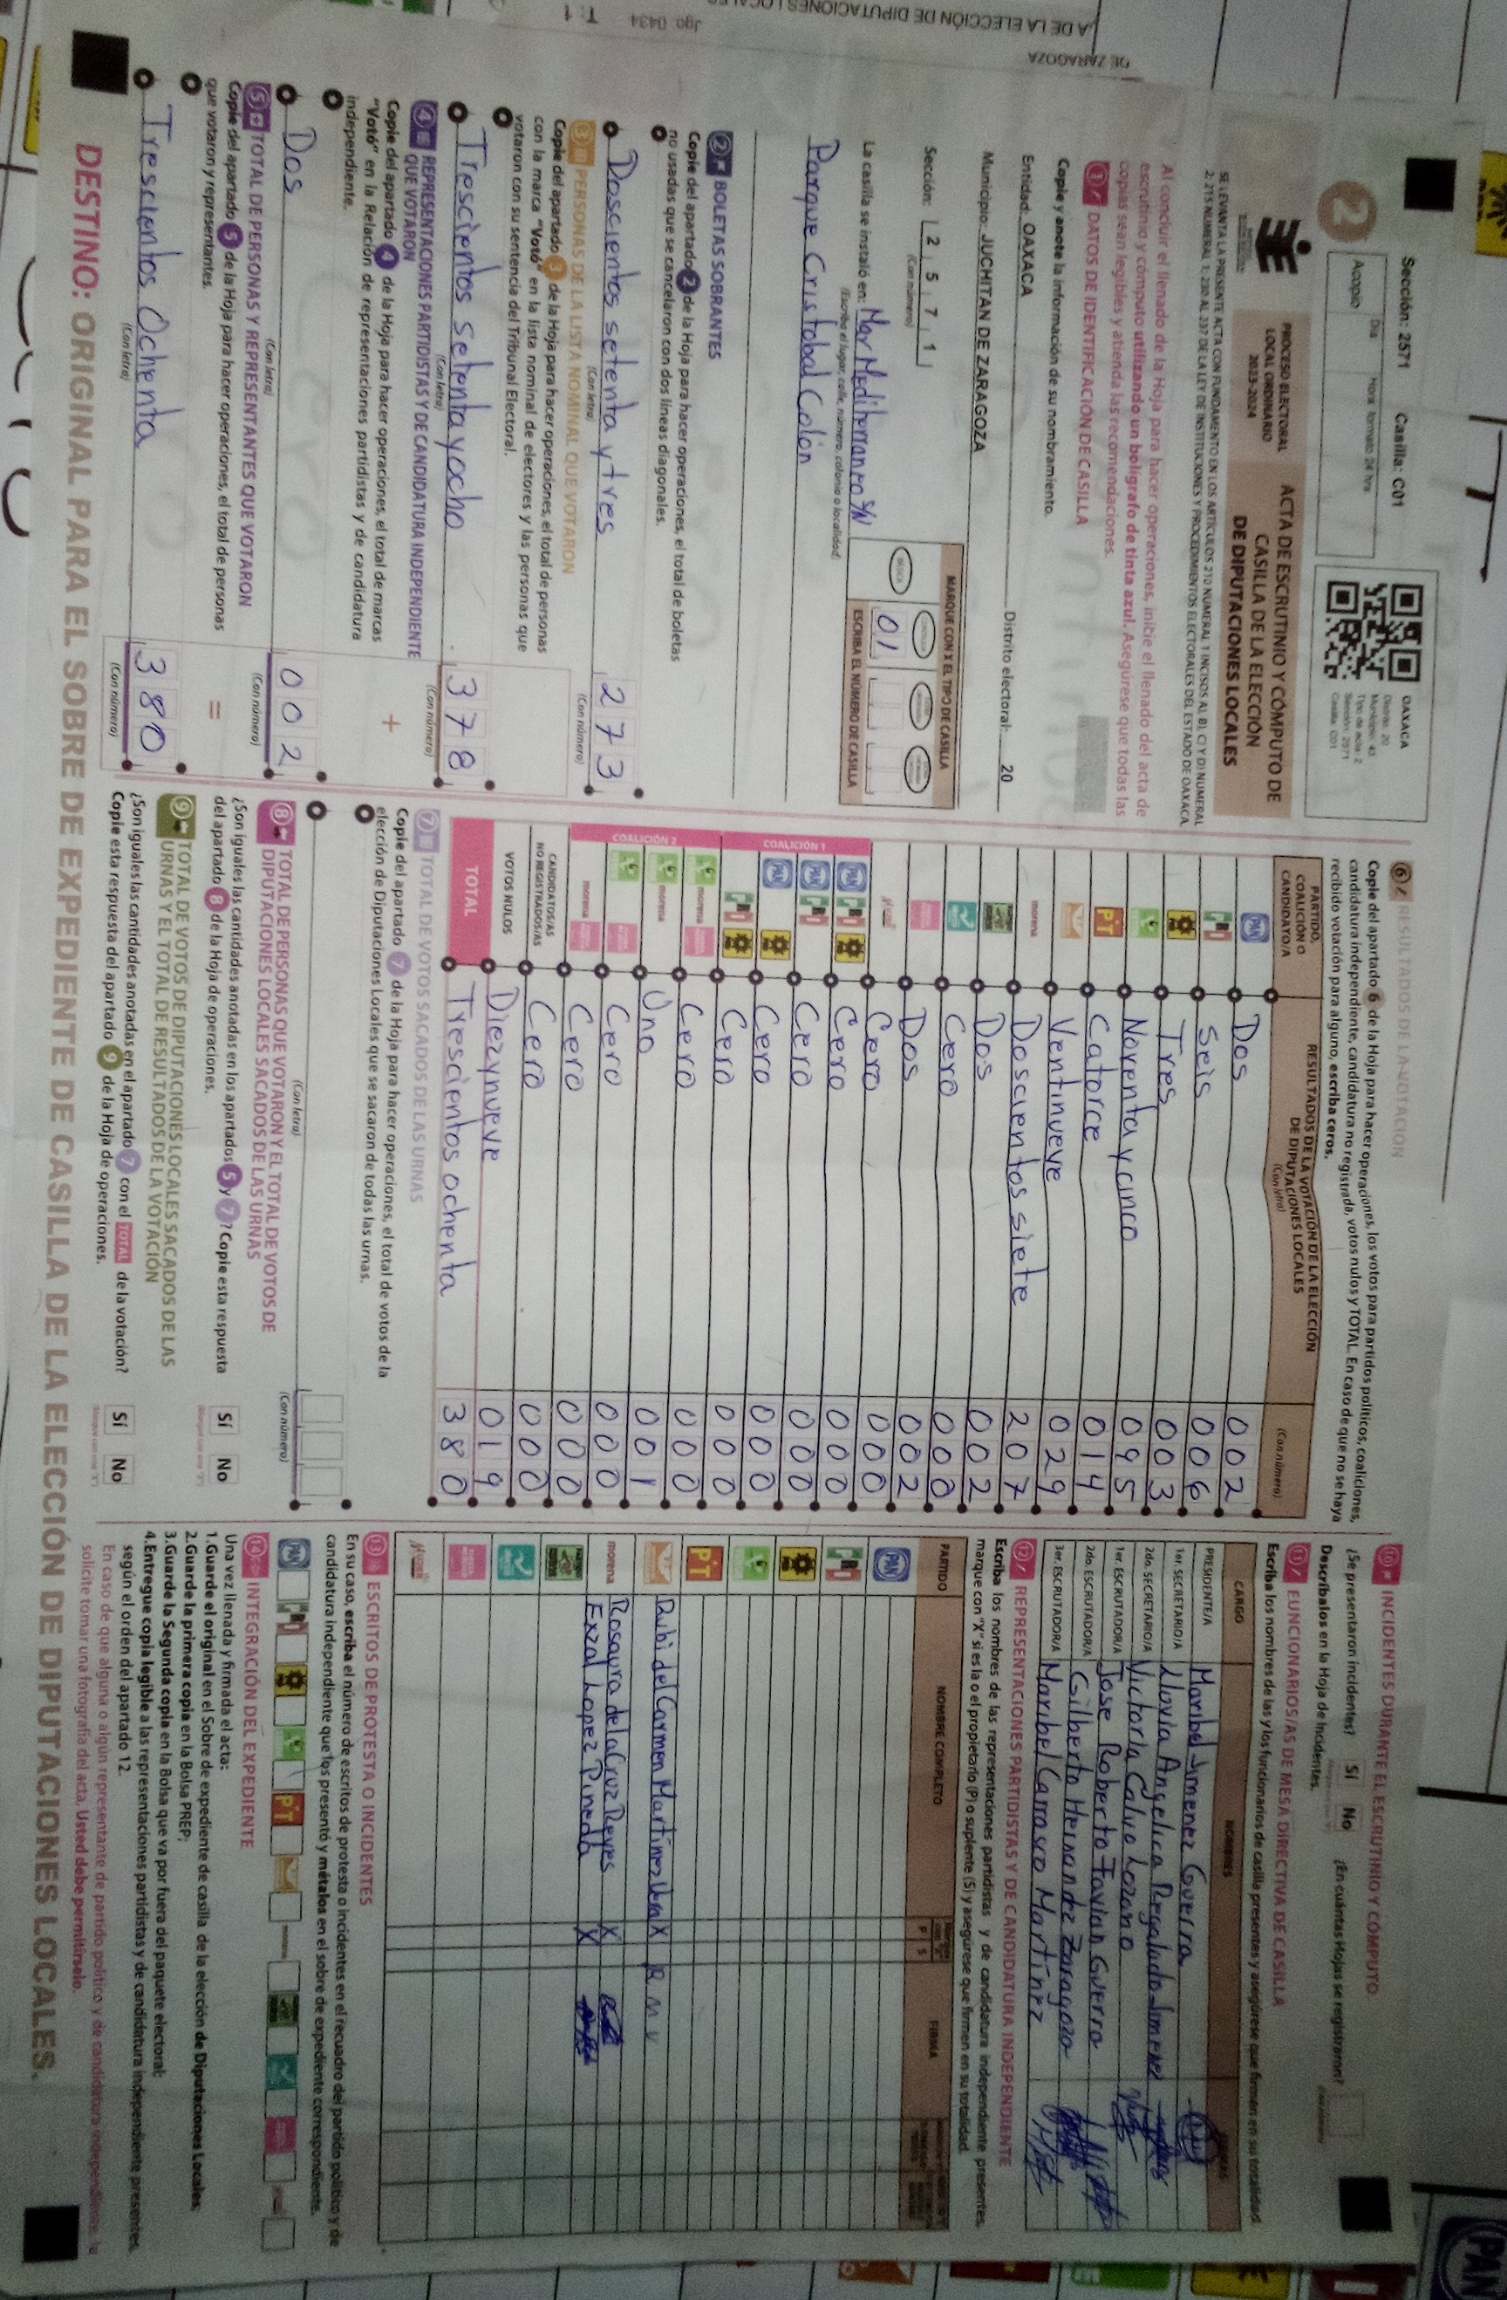 Sección: 2571 Casilla: C01
2
Acopio
Día
Hora formato 24 hrs
PROCESO ELECTORAL
LOCAL ORDINARIO
2023-2024
ACTA DE ESCRUTINIO Y CÓMPUTO DE
CASILLA DE LA ELECCIÓN
DE DIPUTACIONES LOCALES
OAXACA
Distrito: 20
Municipio: 43
Tipo de acta: 2
Sección: 2571
Casilla: C01
SE LEVANTA LA PRESENTE ACTA CON FUNDAMENTO EN LOS ARTÍCULOS 210 NUMERAL 1 INCISOS A), B), C) Y D) NUMERAL
2; 215 NUMERAL 1; 230 AL 237 DE LA LEY DE INSTITUCIONES Y PROCEDIMIENTOS ELECTORALES DEL ESTADO DE OAXACA.
Al concluir el llenado de la Hoja para hacer operaciones, inicie el llenado del acta de
escrutinio y cómputo utilizando un bolígrafo de tinta azul. Asegúrese que todas las
copias sean legibles y atienda las recomendaciones.
1 DATOS DE IDENTIFICACIÓN DE CASILLA
Copie y anote la información de su nombramiento.
Entidad: OAXACA Distrito electoral: 20
Municipio: JUCHITAN DE ZARAGOZA
Sección: 2 5 7 1
(Con número)
MARQUE CON X EL TIPO DE CASILLA
BÁSICA
01
ESCRIBA EL NÚMERO DE CASILLA
La casilla se instaló en: Mar Mediterraneo S/N
(Escriba el lugar, calle, número, colonia o localidad)
Parque Cristobal Colón
2 BOLETAS SOBRANTES
Copie del apartado 2 de la Hoja para hacer operaciones, el total de boletas
no usadas que se cancelaron con dos líneas diagonales.
Doscientos setenta y tres 273
(Con letra) (Con número)
3 PERSONAS DE LA LISTA NOMINAL QUE VOTARON
Copie del apartado 3 de la Hoja para hacer operaciones, el total de personas
con la marca "Votó" en la lista nominal de electores y las personas que
votaron con su sentencia del Tribunal Electoral.
Trescientos setenta y ocho 378
(Con letra) (Con número)
4 REPRESENTACIONES PARTIDISTAS Y DE CANDIDATURA INDEPENDIENTE
QUE VOTARON
Copie del apartado 4 de la Hoja para hacer operaciones, el total de marcas
"Votó" en la Relación de representaciones partidistas y de candidatura
independiente.
+
Dos 002
(Con letra) (Con número)
5 TOTAL DE PERSONAS Y REPRESENTANTES QUE VOTARON
Copie del apartado 5 de la Hoja para hacer operaciones, el total de personas
que votaron y representantes.
=
Trescientos Ochenta 380
(Con letra) (Con número)
6 RESULTADOS DE LA VOTACIÓN
Copie del apartado 6 de la Hoja para hacer operaciones, los votos para partidos políticos, coaliciones,
candidatura independiente, candidatura no registrada, votos nulos y TOTAL. En caso de que no se haya
recibido votación para alguno, escriba ceros.
PARTIDO,
COALICIÓN O
CANDIDATO/A
RESULTADOS DE LA VOTACIÓN DE LA ELECCIÓN
DE DIPUTACIONES LOCALES
(Con letra) (Con número)
PAN Dos 002
PRI Seis 006
Tres 003
Noventa y cinco 095
PT Catorce 014
Ventinueve 029
morena Doscientos siete 207
Dos 002
Cero 000
Dos 002
Cero 000
COALICIÓN 1
PAN PRI Cero 000
PAN PRI Cero 000
PAN Cero 000
PRI Cero 000
COALICIÓN 2
morena Cero 000
morena Uno 001
Cero 000
morena Cero 000
CANDIDATOS/AS
NO REGISTRADOS/AS Cero 000
VOTOS NULOS Diezynueve 019
TOTAL Trescientos ochenta 380
7 TOTAL DE VOTOS SACADOS DE LAS URNAS
Copie del apartado 7 de la Hoja para hacer operaciones, el total de votos de la
elección de Diputaciones Locales que se sacaron de todas las urnas.
(Con letra) (Con número)
8 TOTAL DE PERSONAS QUE VOTARON Y EL TOTAL DE VOTOS DE
DIPUTACIONES LOCALES SACADOS DE LAS URNAS
¿Son iguales las cantidades anotadas en los apartados 5 y 7? Copie esta respuesta
del apartado 8 de la Hoja de operaciones.
Sí No
9 TOTAL DE VOTOS DE DIPUTACIONES LOCALES SACADOS DE LAS
URNAS Y EL TOTAL DE RESULTADOS DE LA VOTACIÓN
¿Son iguales las cantidades anotadas en el apartado 7 con el TOTAL de la votación?
Copie esta respuesta del apartado 9 de la Hoja de operaciones.
Sí No
10 INCIDENTES DURANTE EL ESCRUTINIO Y CÓMPUTO
¿Se presentaron incidentes? Sí No ¿En cuántas Hojas se registraron?
Descríbalos en la Hoja de Incidentes.
11 FUNCIONARIOS/AS DE MESA DIRECTIVA DE CASILLA
Escriba los nombres de las y los funcionarios de casilla presentes y asegúrese que firmen en su totalidad.
CARGO NOMBRES FIRMAS
PRESIDENTE/A Maribel Jimenez Guerra
1er. SECRETARIO/A Lluvia Angelica Regalado Jimenez
2do. SECRETARIO/A Victoria Calvo Lozano
1er. ESCRUTADOR/A Jose Roberto Favian Guerra
2do. ESCRUTADOR/A Gilberto Hernandez Zaragoza
3er. ESCRUTADOR/A Maribel Carrasco Martinez
12 REPRESENTACIONES PARTIDISTAS Y DE CANDIDATURA INDEPENDIENTE
Escriba los nombres de las representaciones partidistas y de candidatura independiente presentes,
marque con "X" si es la o el propietario (P) o suplente (S) y asegúrese que firmen en su totalidad.
PARTIDO NOMBRE COMPLETO P S FIRMA
PAN
PRI
PT
Rubi del Carmen Martinez Vera X R M V
morena Rosaura de la Cruz Reyes X
Exzal Lopez Pineda X
13 ESCRITOS DE PROTESTA O INCIDENTES
En su caso, escriba el número de escritos de protesta o incidentes en el recuadro del partido político y de
candidatura independiente que los presentó y métalos en el sobre de expediente correspondiente.
PAN PRI PT morena
14 INTEGRACIÓN DEL EXPEDIENTE
Una vez llenada y firmada el acta:
1.Guarde el original en el Sobre de expediente de casilla de la elección de Diputaciones Locales;
2.Guarde la primera copia en la Bolsa PREP;
3.Guarde la Segunda copia en la Bolsa que va por fuera del paquete electoral;
4.Entregue copia legible a las representaciones partidistas y de candidatura independiente presentes,
según el orden del apartado 12.
En caso de que alguna o algún representante de partido político y de candidatura independiente, le
solicite tomar una fotografía del acta, Usted debe permitírselo.
DESTINO: ORIGINAL PARA EL SOBRE DE EXPEDIENTE DE CASILLA DE LA ELECCIÓN DE DIPUTACIONES LOCALES.
DE ZARAGOZA
A DE LA ELECCIÓN DE DIPUTACIONES LOCALES
Jgo: 0434 T: 1
PAN